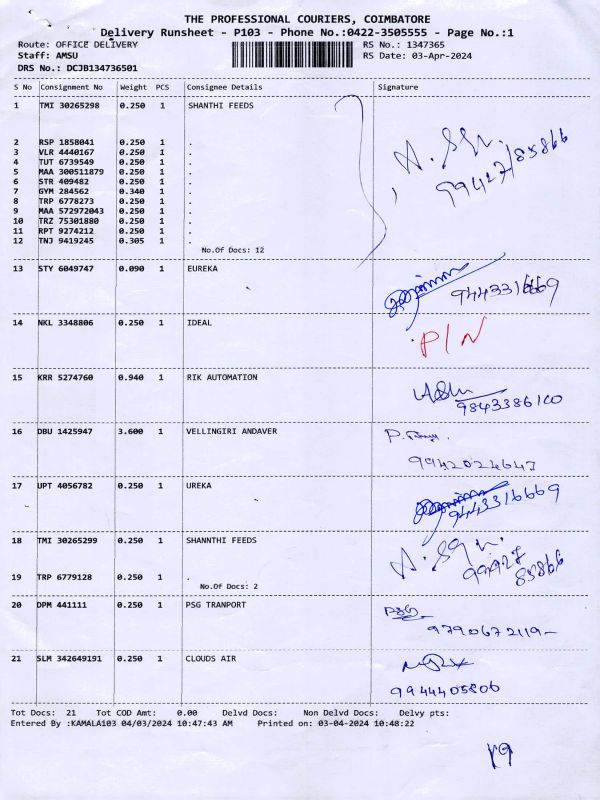 THE PROFESSIONAL COURIERS, COIMBATORE
Delivery Runsheet - P103 - Phone No.:0422-3505555 - Page No.:1
Route: OFFICE DELIVERY RS No.: 1347365
Staff: AMSU RS Date: 03-Apr-2024
DRS No.: DCJB134736501
S No Consignment No Weight PCS Consignee Details Signature
1 TMI 30265298 0.250 1 SHANTHI FEEDS
2 RSP 1858041 0.250 1 .
3 VLR 4440167 0.250 1 .
4 TUT 6739549 0.250 1 .
5 MAA 300511879 0.250 1 .
6 STR 409482 0.250 1 .
7 GYM 284562 0.340 1 .
8 TRP 6778273 0.250 1 .
9 MAA 572972043 0.250 1 .
10 TRZ 75301880 0.250 1 .
11 RPT 9274212 0.250 1 .
12 TNJ 9419245 0.305 1 .
No.Of Docs: 12
13 STY 6049747 0.090 1 EUREKA
9443316669
14 NKL 3348806 0.250 1 IDEAL P/N
15 KRR 5274760 0.940 1 RIK AUTOMATION
9843386100
16 DBU 1425947 3.600 1 VELLINGIRI ANDAVER
9942024647
17 UPT 4056782 0.250 1 UREKA
9443316669
18 TMI 30265299 0.250 1 SHANNTHI FEEDS
19 TRP 6779128 0.250 1 .
No.Of Docs: 2
20 DPM 441111 0.250 1 PSG TRANPORT PSG
9790672119
21 SLM 342649191 0.250 1 CLOUDS AIR
9944405806
Tot Docs: 21 Tot COD Amt: 0.00 Delvd Docs: Non Delvd Docs: Delvy pts:
Entered By :KAMALA103 04/03/2024 10:47:43 AM Printed on: 03-04-2024 10:48:22
19